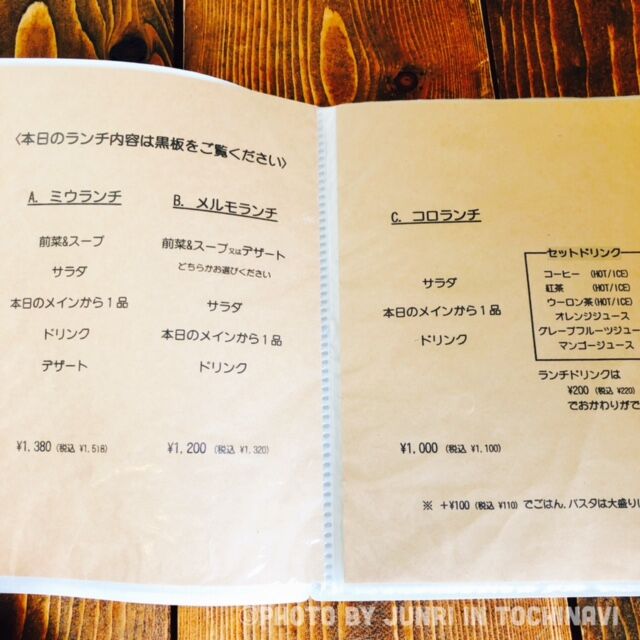 〈本日のランチ内容は黒板をご覧ください〉
A. ミウランチ
前菜&スープ
サラダ
本日のメインから1品
ドリンク
デザート
¥1,380 (税込 ¥1,518)
B. メルモランチ
前菜&スープ又はデザート
どちらかお選びください
サラダ
本日のメインから1品
ドリンク
¥1,200 (税込 ¥1,320)
C. コロランチ
サラダ
本日のメインから1品
ドリンク
¥1,000 (税込 ¥1,100)
セットドリンク
コーヒー (HOT/ICE)
紅茶 (HOT/ICE)
ウーロン茶(HOT/ICE)
オレンジジュース
グレープフルーツジュー
マンゴージュース
ランチドリンクは
¥200 (税込 ¥220)
でおかわりがで
※ +¥100 (税込 ¥110) でごはん、パスタは大盛りに
©PHOTO BY JUNRI IN TOCHINAVI